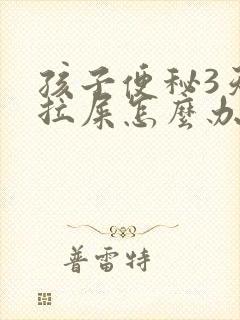 孩子便秘3天
拉屎怎麼办
普雷特